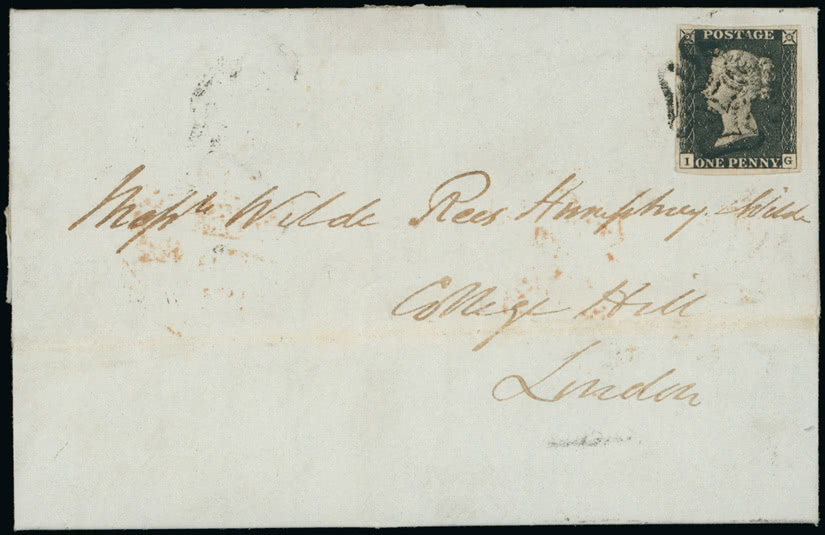 POSTAGE
I ONE PENNY. G
Messrs Wilde Rees Humphrey Wilde
College Hill
London